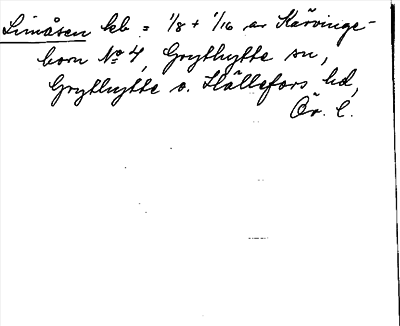 Limåsen lkb = 1/8 + 1/16 av Kärvinge-
born No 4, Grythytte sn,
Grythytte o. Hällefors hd,
Ör. l.